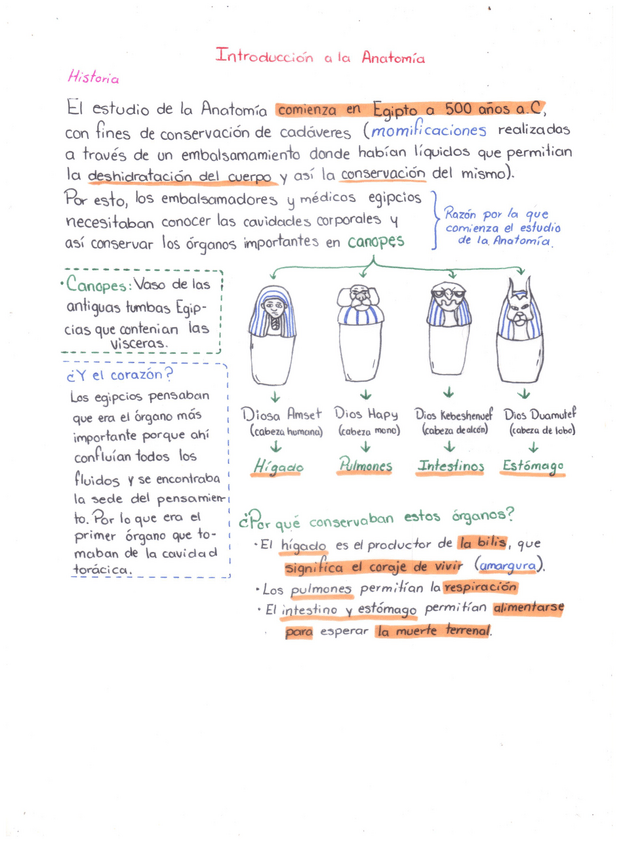 Introducción a la Anatomía
Historia
El estudio de la Anatomía comienza en Egipto a 500 años a.C,
con fines de conservación de cadáveres (momificaciones realizadas
a través de un embalsamamiento donde habían líquidos que permitian
la deshidratación del cuerpo y así la conservación del mismo).
Por esto, los embalsamadores y médicos egipcios
necesitaban conocer las cavidades corporales y
así conservar los órganos importantes en canopes
Razón por la que
comienza el estudio
de la Anatomía.
·Canopes: Vaso de las
antiguas tumbas Egip-
cias que contenian las
vísceras.
¿Y el corazón?
Los egipcios pensaban
que era el órgano más
importante porque ahí
confluían todos los
fluidos y se encontraba
la sede del pensamien-
to. Por lo que era el
primer órgano que to-
maban de la cavidad
torácica.
Diosa Amset
(cabeza humana)
Hígado
Dios Hapy
(cabeza mono)
Pulmones
Dios Kebeshenuef
(cabeza de alcón)
Intestinos
Dios Duamutef
(cabeza de lobo)
Estómago
¿Por qué conservaban estos órganos?
· El hígado es el productor de la bilis, que
significa el coraje de vivir (amargura).
· Los pulmones permitían la respiración
· El intestino y estómago permitían alimentarse
para esperar la muerte terrenal.